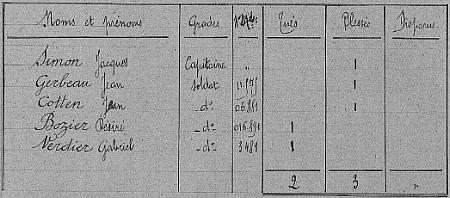 Noms et prénoms Grades Nos Mles Tués Blessés Disparus
Simon Jacques Capitaine " 1
Gerbeau Jean soldat 1
Cotten Jean _do 06.881 1
Bozier Désiré _do 016.891 1
Verdier Gabriel _do 3481 1
2 3 "